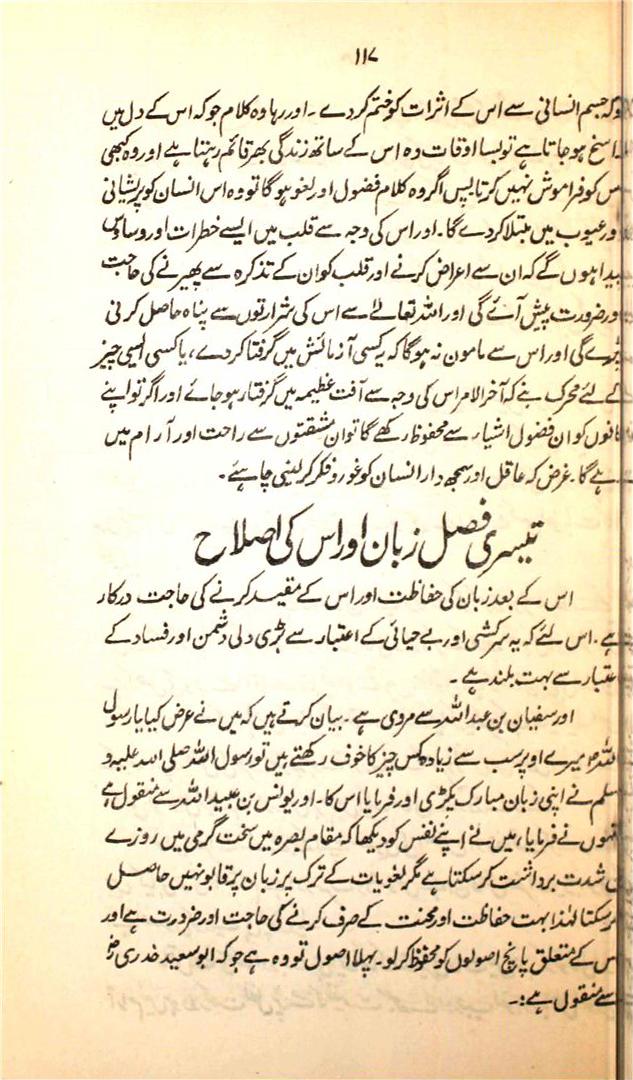 ۱۱۷
وکہ جسم انسانی سے اس کے اثرات کو ختم کردے ۔ اور رہا وہ کلام جو کہ اس کے دل میں
راسخ ہو جاتا ہے تو بسا اوقات وہ اس کے ساتھ زندگی بھر قائم رہتا ہے اور وہ کبھی
اس کو فراموش نہیں کرتا پس اگر وہ کلام فضول اور لغو ہوگا تو وہ اس انسان کو پریشانی
اور عیوب میں مبتلا کردے گا ۔ اور اس کی وجہ سے قلب میں ایسے خطرات اور وساوس
پیدا ہوں گے کہ ان سے اعراض کرنے اور قلب کو ان کے تذکرہ سے پھیرنے کی حاجت
اور ضرورت پیش آئے گی اور اللہ تعالےٰ سے اس کی شرارتوں سے پناہ حاصل کرنی
پڑے گی اور اس سے مامون نہ ہوگا کہ کیسی آزمائش میں گرفتا کردے ، یا کسی ایسی چیز
کے لئے محرک بنے کہ آخر الامر اس کی وجہ سے آفت عظیمہ میں گرفتار ہوجائے اور اگر تو اپنے
کانوں کو ان فضول اشیار سے محفوظ رکھے گا تو ان مشقتوں سے راحت اور آرام میں
رہے گا ۔ غرض کہ عاقل اور سمجھ دار انسان کو غور و فکر کرلینی چاہئے ۔
تیسری فصل زبان اور اس کی اصلاح
اس کے بعد زبان کی حفاظت اور اس کے مقید کرنے کی حاجت درکار
ہے ۔ اس لئے کہ یہ سرکشی اور بے حیائی کے اعتبار سے بڑی دلی دشمن اور فساد کے
اعتبار سے بہت بلند ہے ۔
اور سفیان بن عبداللہ سے مروی ہے ۔ بیان کرتے ہیں کہ میں نے عرض کیا یا رسول
اللہ میرے اوپر سب سے زیادہ کس چیز کا خوف رکھتے ہیں تو رسول اللہ صلی اللہ علیہ و
سلم نے اپنی زبان مبارک پکڑی اور فرمایا اس کا ۔ اور یونس بن عبید اللہ سے منقول ہے
انہوں نے فرمایا ، میں نے اپنے نفس کو دیکھا کہ مقام بصرہ میں سخت گرمی میں روزے
کی شدت برداشت کر سکتا ہے مگر لغویات کے ترک پر زبان پر قابو نہیں حاصل
کر سکتا لہٰذا بہت حفاظت اور محنت کے صرف کرنے کی حاجت اور ضرورت ہے اور
اس کے متعلق پانچ اصولوں کو محفوظ کرلو ۔ پہلا اصول تو وہ ہے جو کہ ابو سعید خدری رض
سے منقول ہے :۔